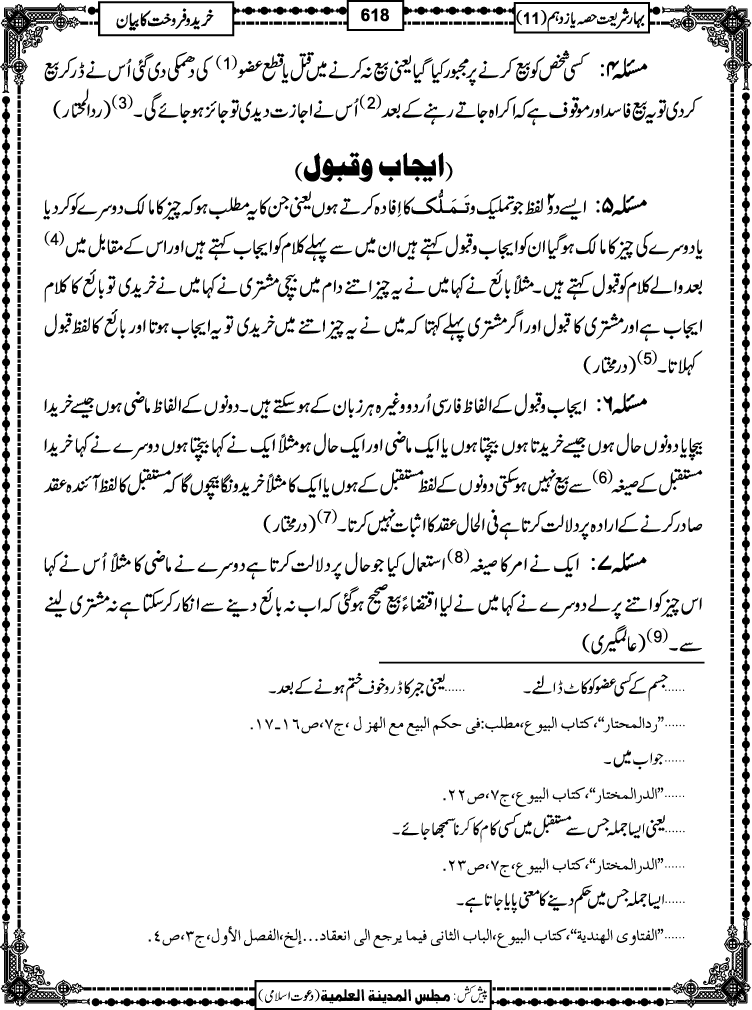 بہارِ شریعت حصہ یازدہم (11)
618
خرید و فروخت کا بیان
مسئلہ ۴: کسی شخص کو بیع کرنے پر مجبور کیا گیا یعنی بیع نہ کرنے میں قتل یا قطع عضو (1) کی دھمکی دی گئی اُس نے ڈر کر بیع
کردی تو یہ بیع فاسد اور موقوف ہے کہ اکراہ جاتے رہنے کے بعد (2) اُس نے اجازت دیدی تو جائز ہو جائے گی۔ (3) (ردالمحتار)
(ایجاب و قبول)
مسئلہ ۵: ایسے دو۲ لفظ جو تملیک و تَمَلُّک کا اِفادہ کرتے ہوں یعنی جن کا یہ مطلب ہو کہ چیز کا مالک دوسرے کو کردیا
یا دوسرے کی چیز کا مالک ہوگیا ان کو ایجاب و قبول کہتے ہیں ان میں سے پہلے کلام کو ایجاب کہتے ہیں اور اس کے مقابل میں (4)
بعد والے کلام کو قبول کہتے ہیں۔ مثلاً بائع نے کہا میں نے یہ چیز اتنے دام میں بیچی مشتری نے کہا میں نے خریدی تو بائع کا کلام
ایجاب ہے اور مشتری کا قبول اور اگر مشتری پہلے کہتا کہ میں نے یہ چیز اتنے میں خریدی تو یہ ایجاب ہوتا اور بائع کا لفظ قبول
کہلاتا۔ (5) (درمختار)
مسئلہ ۶: ایجاب و قبول کے الفاظ فارسی اُردو وغیرہ ہر زبان کے ہوسکتے ہیں۔ دونوں کے الفاظ ماضی ہوں جیسے خریدا
بیچا یا دونوں حال ہوں جیسے خریدتا ہوں بیچتا ہوں یا ایک ماضی اور ایک حال ہو مثلاً ایک نے کہا بیچتا ہوں دوسرے نے کہا خریدا
مستقبل کے صیغہ (6) سے بیع نہیں ہوسکتی دونوں کے لفظ مستقبل کے ہوں یا ایک کا مثلاً خریدونگا بیچوں گا کہ مستقبل کا لفظ آئندہ عقد
صادر کرنے کے ارادہ پر دلالت کرتا ہے فی الحال عقد کا اثبات نہیں کرتا۔ (7) (درمختار)
مسئلہ ۷: ایک نے امر کا صیغہ (8) استعمال کیا جو حال پر دلالت کرتا ہے دوسرے نے ماضی کا مثلاً اُس نے کہا
اس چیز کو اتنے پر لے دوسرے نے کہا میں نے لیا اقتضاءً بیع صحیح ہوگئی کہ اب نہ بائع دینے سے انکار کرسکتا ہے نہ مشتری لینے
سے۔ (9) (عالمگیری)
......جسم کے کسی عضو کو کاٹ ڈالنے۔ ......یعنی جبر کا ڈر و خوف ختم ہونے کے بعد۔
......”ردالمحتار“، کتاب البیوع، مطلب: فی حکم البیع مع الھزل، ج۷، ص۱۶-۱۷.
......جواب میں۔
......”الدرالمختار“، کتاب البیوع، ج۷، ص۲۲.
......یعنی ایسا جملہ جس سے مستقبل میں کسی کام کا کرنا سمجھا جائے۔
......”الدرالمختار“، کتاب البیوع، ج۷، ص۲۳.
......ایسا جملہ جس میں حکم دینے کا معنی پایا جاتا ہے۔
......”الفتاوی الھندیة“، کتاب البیوع، الباب الثانی فیما یرجع الی انعقاد...إلخ، الفصل الأول، ج۳، ص۴.
پیش کش: مجلس المدینة العلمیة (دعوت اسلامی)